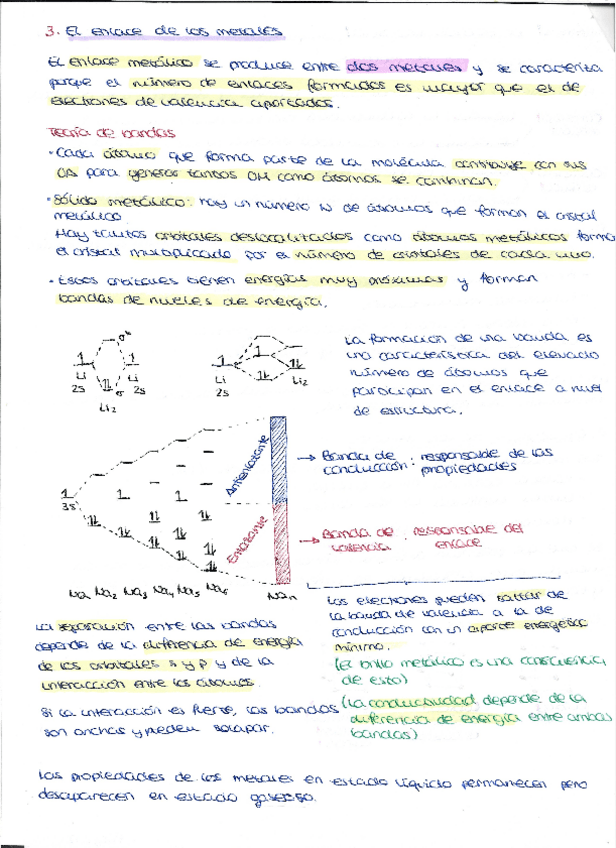 3. El enlace de los metales
El enlace metálico se produce entre dos metales y se caracteriza
porque el número de enlaces formados es mayor que el de
electrones de valencia aportados.
Teoría de bandas
· Cada átomo que forma parte de la molécula contribuye con sus
OA para generar tantos OM como átomos se combinan.
· Sólido metálico: hay un número N de átomos que forman el cristal
metálico
Hay tantos orbitales deslocalizados como átomos metálicos forma
el cristal multiplicado por el número de orbitales de cada uno.
· Estos orbitales tienen energías muy próximas y forman
bandas de niveles de energía.
La formación de una banda es
una característica del elevado
número de átomos que
participan en el enlace a nivel
de estructura.
σ*
Li Li
2s σ 2s
Li2
Li Li2
2s
3s
Antienlazante
Enlazante
Na Na2 Na3 Na4 Na5 Na6 Nan
→ Banda de conducción : responsable de las propiedades
→ Banda de valencia : responsable del enlace
La separación entre las bandas
depende de la diferencia de energía
de los orbitales s y p y de la
interacción entre los átomos.
Si la interacción es fuerte, las bandas
son anchas y pueden solapar.
Los electrones pueden saltar de
la banda de valencia a la de
conducción con un aporte energético
mínimo.
(el brillo metálico es una consecuencia
de esto)
(La conductividad depende de la
diferencia de energía entre ambas
bandas)
Las propiedades de los metales en estado líquido permanecen pero
desaparecen en estado gaseoso.